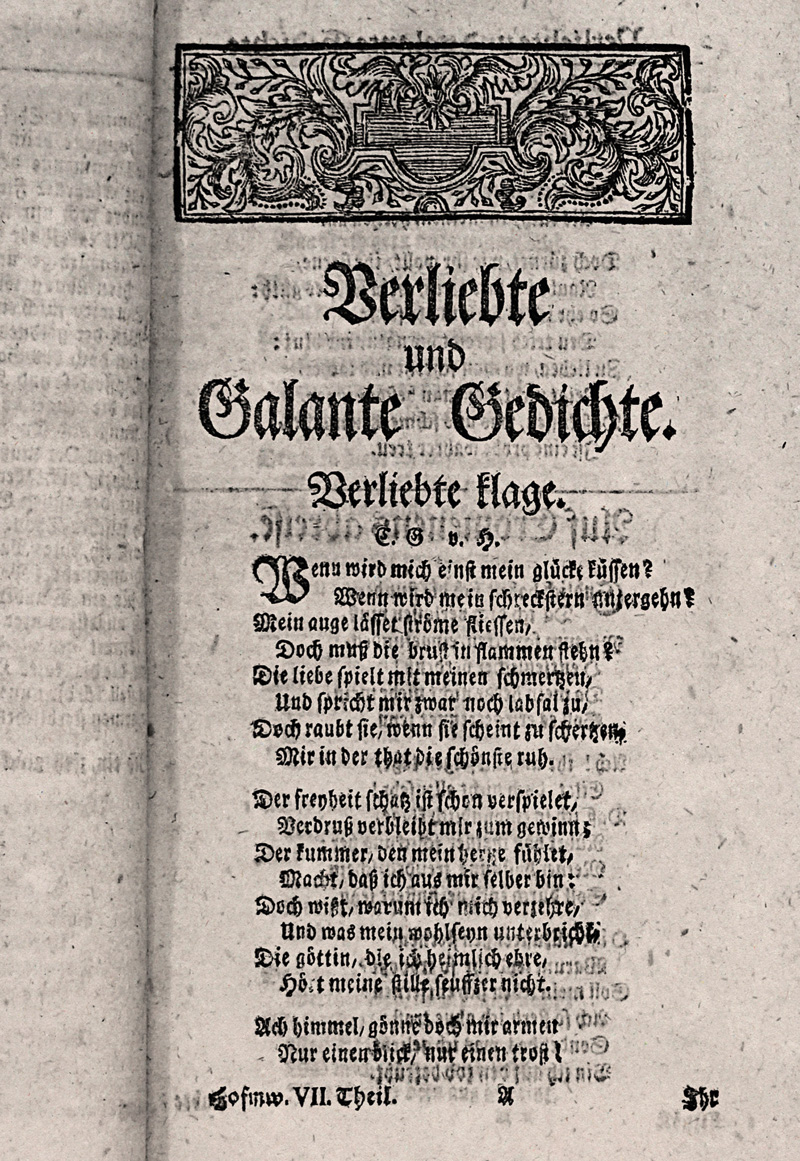 Verliebte
und
Galante Gedichte.
Verliebte klage.
C. G v. H.
Wenn wird mich einst mein glücke küssen?
Wenn wird mein schreckstern untergehn?
Mein auge lässet ströme fliessen,
Doch muß die brust in flammen stehn?
Die liebe spielt mit meinen schmertzen,
Und spricht mir zwar noch labsal zu,
Doch raubt sie, wenn sie scheint zu schertzen,
Mir in der that die schönste ruh.
Der freyheit schatz ist schon verspielet,
Verdruß verbleibt mir zum gewinn;
Der kummer, den mein hertze fühlet,
Macht, daß ich aus mir selber bin:
Doch wißt, warum ich mich verzehre,
Und was mein wohlseyn unterbricht;
Die göttin, die ich heimlich ehre,
Hört meine stille seuffzer nicht.
Ach himmel, gönne doch mir armen
Nur einen blick, nur einen trost!
Hofmw. VII. Theil. A Ihr